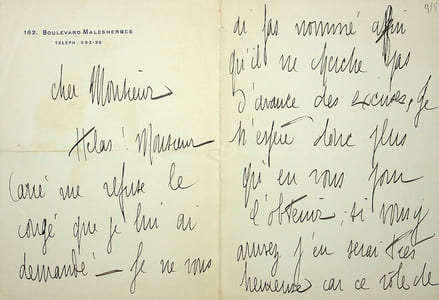 162. BOULEVARD MALESHERBES
TÉLÉPH. 592-59
Cher Monsieur
Hélas! Monsieur
Carré me refuse le
congé que je lui ai
demandé — Je ne vous
ai pas nommé afin
qu'il ne cherche pas
d'avance des excuses, Je
n'espère donc plus
qu'en vous pour
l'obtenir; si vous y
arrivez j'en serai très
heureuse car ce rôle de